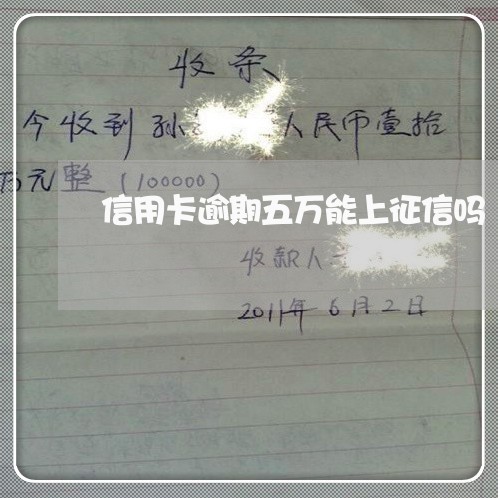 收条
今收到孙 人民币壹拾
万元整(100000)
信用卡逾期五万能上征信吗
收款人
2011年6月2日